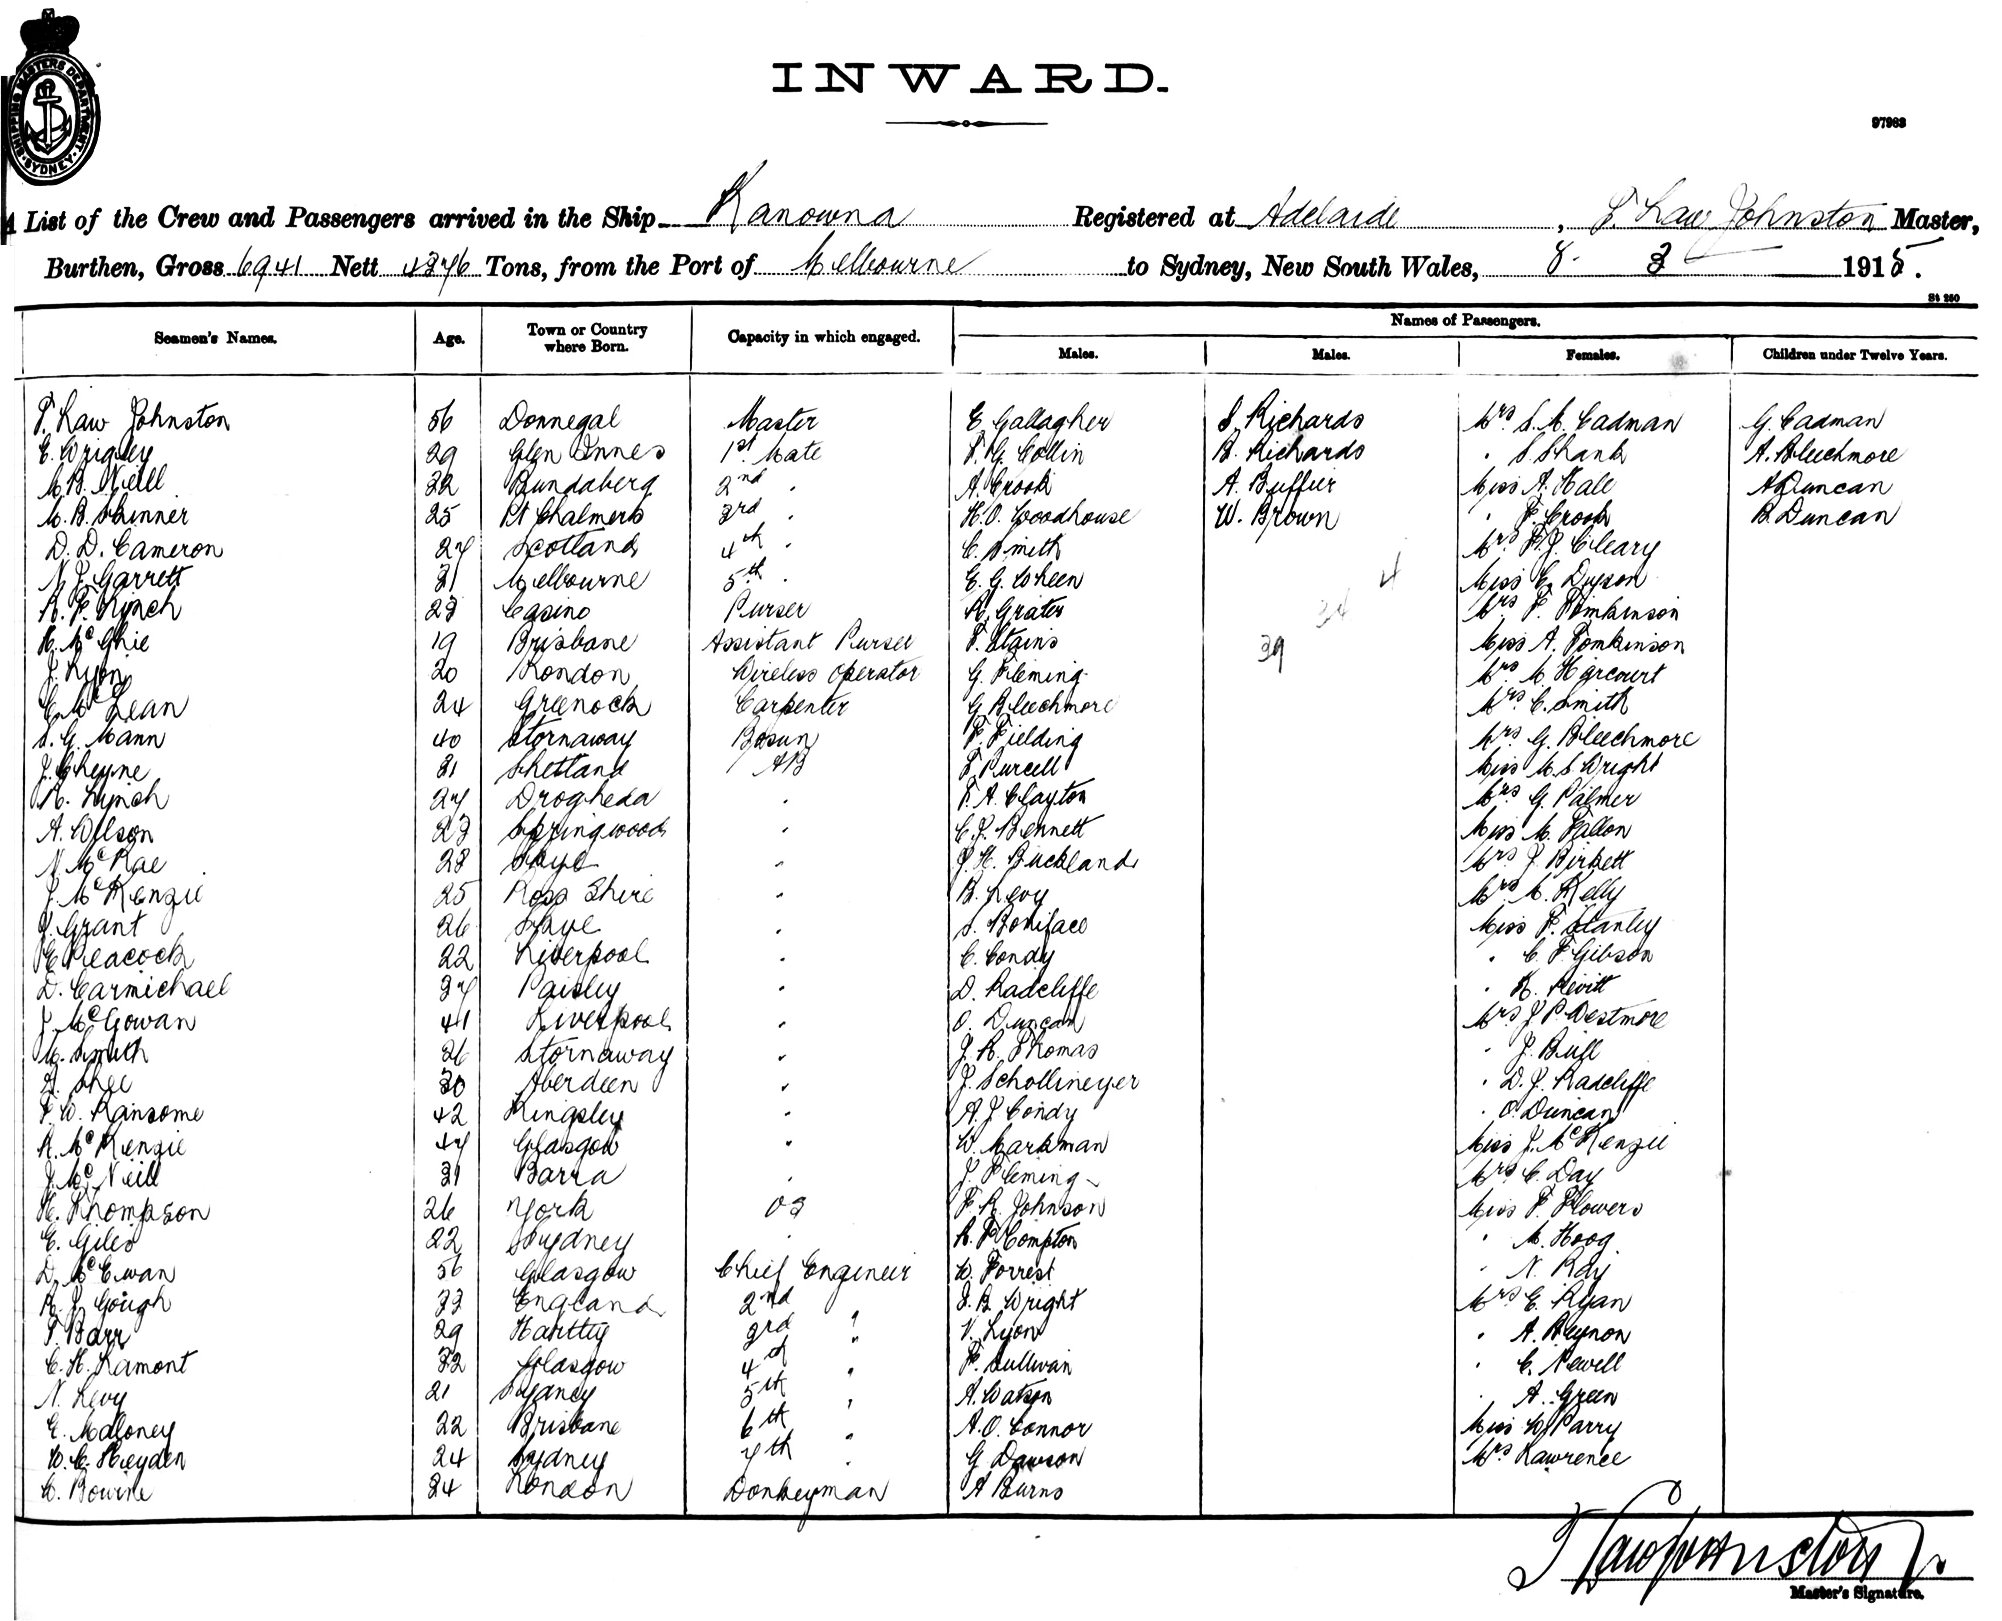 SHIPPING MASTERS DEPARTMENT · SYDNEY ·
INWARD.
97983
A List of the Crew and Passengers arrived in the Ship Kanowna Registered at Adelaide, T. Law Johnston Master,
Burthen, Gross 6941 Nett 4376 Tons, from the Port of Melbourne to Sydney, New South Wales, 8 3 1915.
St 250
Names of Passengers.
Seamen's Names. Age. Town or Country where Born. Capacity in which engaged. Males. Males. Females. Children under Twelve Years.
T. Law Johnston 56 Donnegal Master E Gallagher S. Richards Mrs S. M. Cadman G. Cadman
E. Wrigley 29 Glen Innes 1st Mate T. G. Collin B. Richards " S. Shank A. Bleechmore
M. B. Neill 32 Bundaberg 2nd " A. Crook A. Buffier Miss A. Hall A Duncan
M. B. Skinner 25 Pt Chalmers 3rd " H. O. Woodhouse W. Brown " F. Crook B. Duncan
D. D. Cameron 27 Scotland 4th " C. Smith Mrs F. J. Cleary
N. J. Garrett 31 Melbourne 5th " E. G. Wheen 4 Miss E. Dyson
R. F. Lynch 23 Casino Purser H. Grater 34 Mrs F. Tomkinson
H. McGhie 19 Brisbane Assistant Purser F. Stains 39 Miss A. Tomkinson
J. Lyon 20 London Wireless Operator G. Fleming Mrs M. Harcourt
C. McLean 24 Greenock Carpenter G Bleechmore Mrs C. Smith
S. G. Mann 40 Stornaway Bosun F. Fielding Mrs G. Bleechmore
J. Cheyne 31 Shetland AB T. Purcell Miss M. S Wright
H. Lynch 27 Drogheda " T. A. Clayton Mrs G. Palmer
A. Wilson 23 Springwood " C. J. Bennett Miss M. Fallon
N. McRae 28 Skye " J. H. Buckland Mrs J. Birkett
J. McKenzie 25 Ross Shire " B. Levy Mrs M. Kelly
J. Grant 26 Skye " S. Boniface Miss F. Stanley
E Peacock 22 Liverpool " C. Condy " C. F. Gibson
D. Carmichael 37 Paisley " D. Radcliffe " H. Levitt
J. McGowan 41 Liverpool " O. Duncan Mrs J P. Westmore
M. Smith 26 Stornaway " J. R. Thomas " J. Bull
30 Aberdeen " J. Schollmeyer " D. J. Radcliffe
F. W. Ransome 42 Kingsley " A. J Condy " O. Duncan
R. McKenzie 47 Glasgow " W. Markman Miss J. McKenzie
J. McNeill 31 Barra " J. Fleming Mrs C. Day
H. Thompson 26 York OS F. R. Johnson Miss F. Flowers
E. Giles 22 Sydney " R. F Compton " M. Hoog
D. McEwan 56 Glasgow Chief Engineer W. Forrest " N. Ray
R. J. Gough 33 England 2nd " S. B. Wright Mrs E. Ryan
T. Barr 29 3rd " V. Lyon " A. Beynon
C. H. Lamont 32 Glasgow 4th " F. Sullivan " C. Newell
N. Levy 21 Sydney 5th " A. Watson " A. Green
E. Maloney 22 Brisbane 6th " A. O. Connor Miss W Parry
W. C. Heyden 24 Sydney 7th " G Dawson Mrs Lawrence
W. Bourne 34 London Donkeyman A Burns
T Law Johnston
Master's Signature.